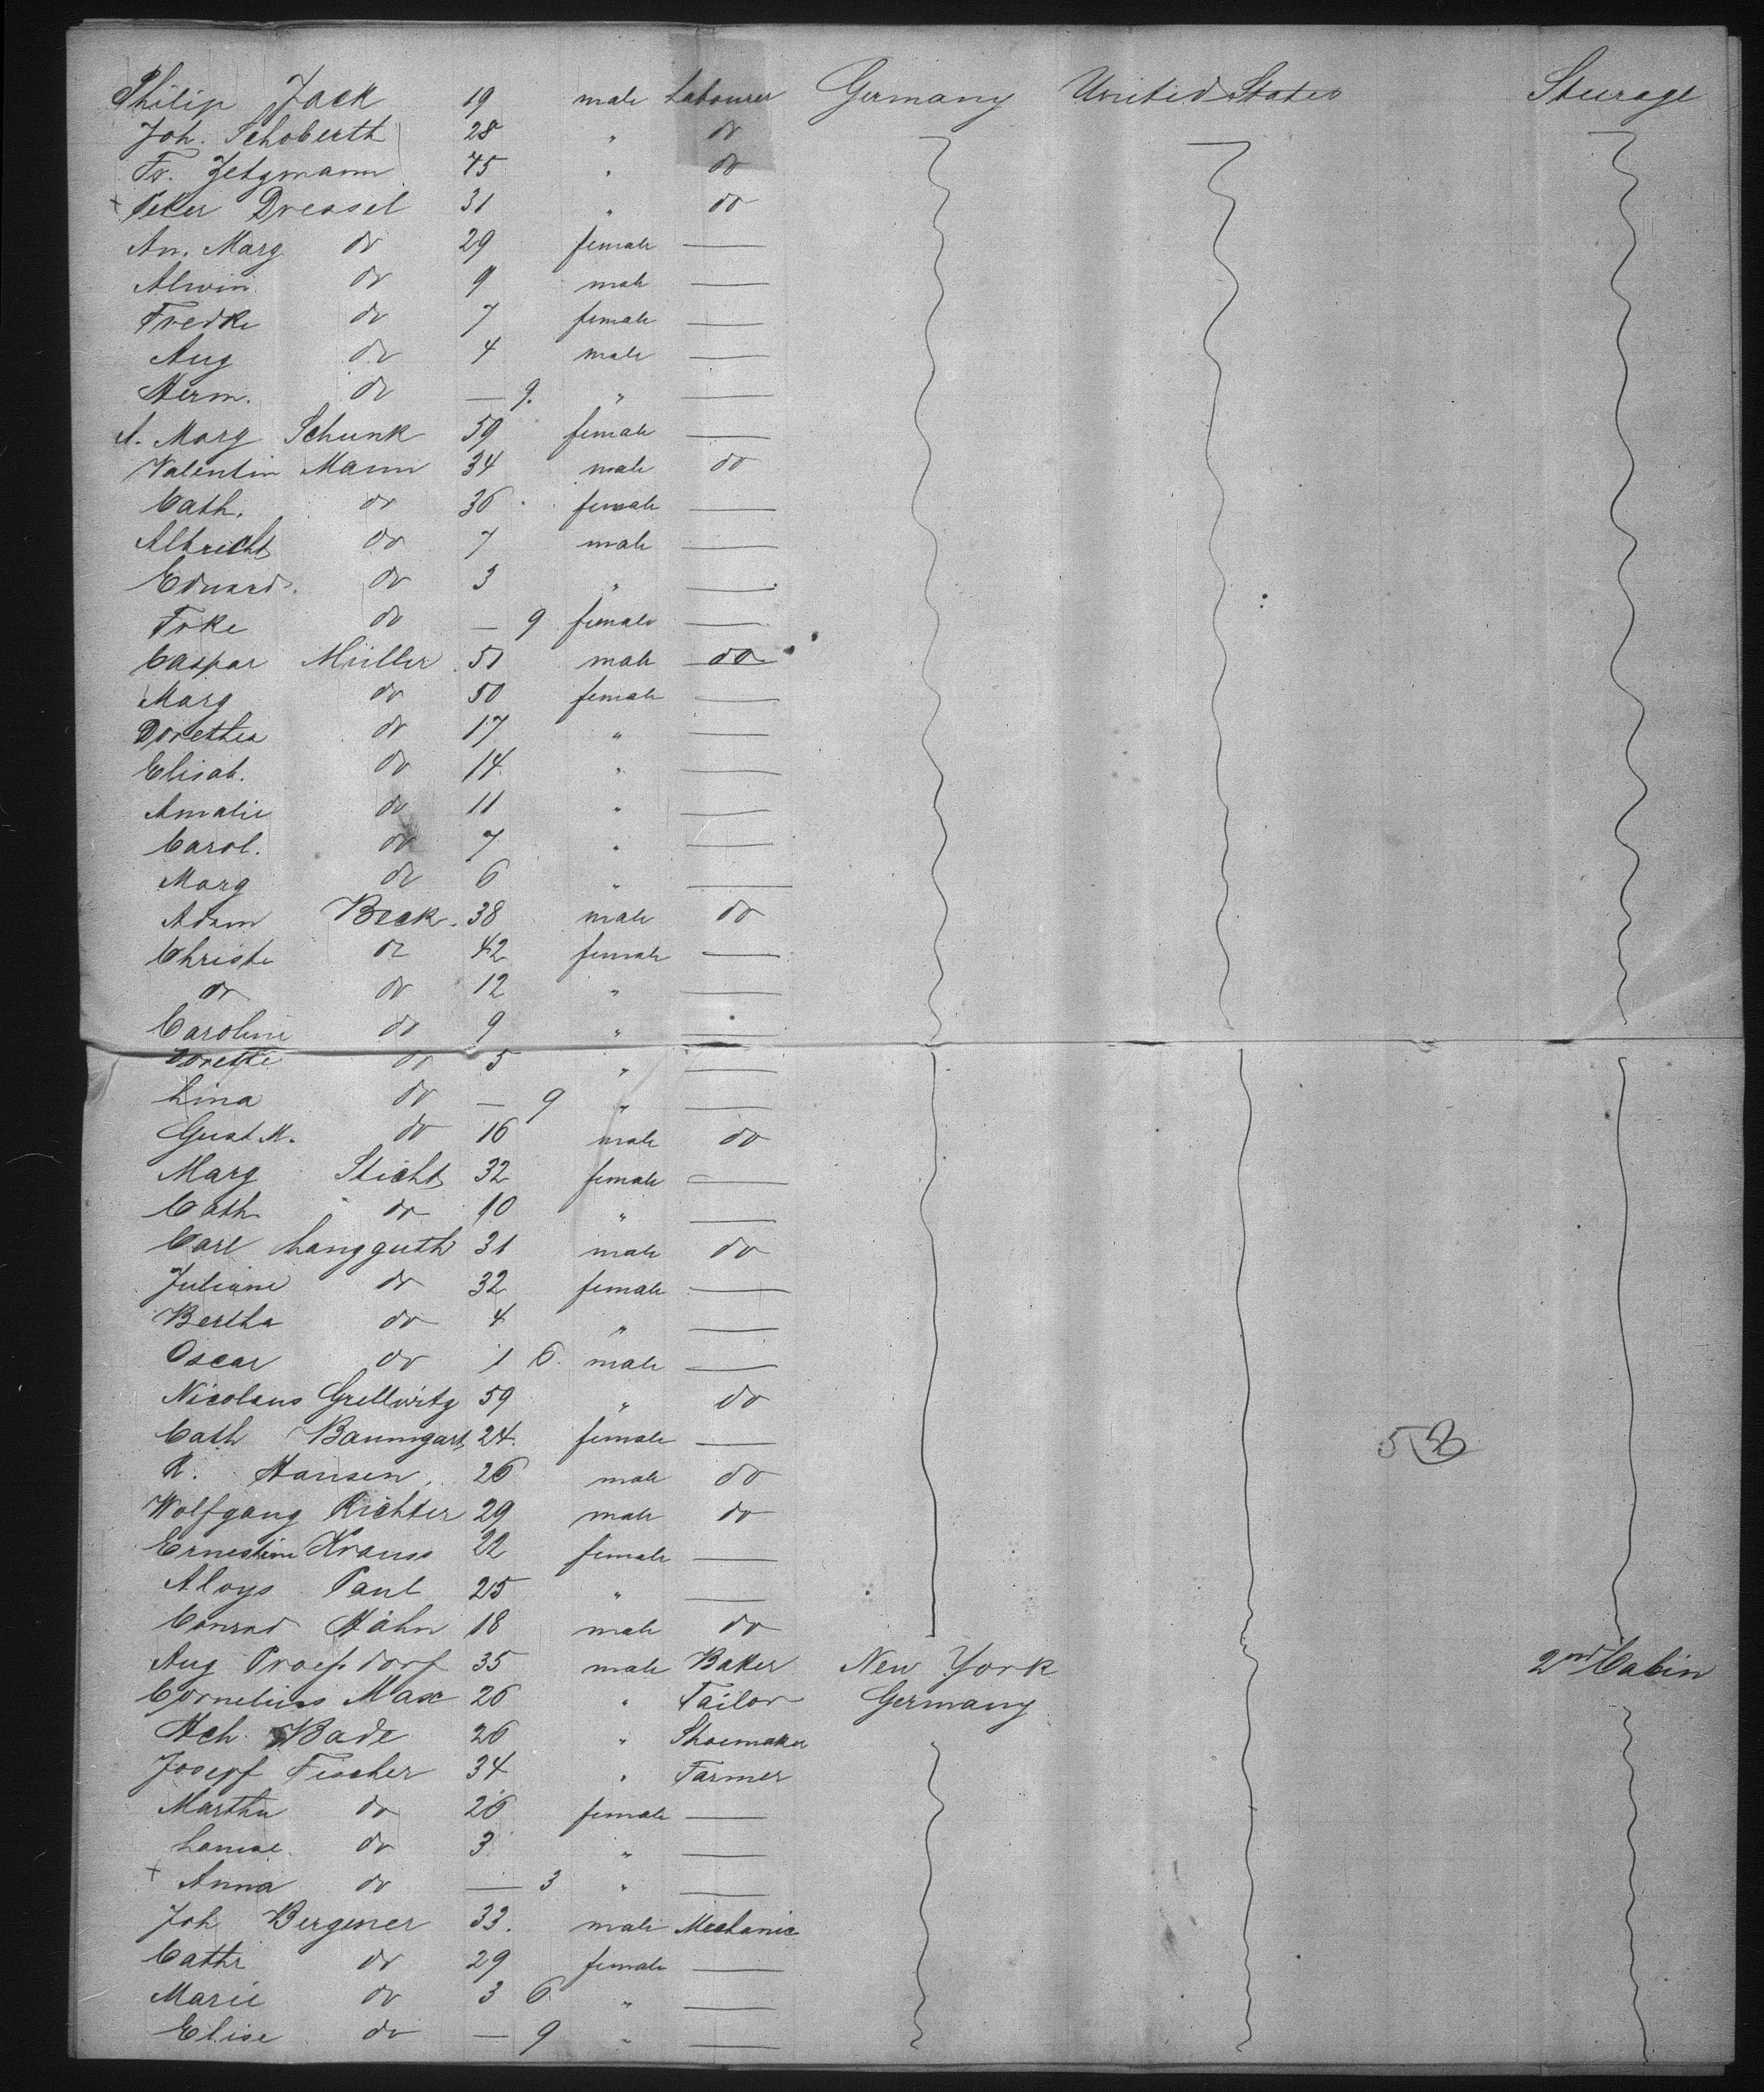 Philip Jack 19 male Labourer Germany United States Steerage
Joh. Schoberth 28 " do
Fr. Zetzmann 45 " do
+ Peter Dressel 31 " do
An. Marg do 29 female —
Alwin do 9 male —
Fredke do 7 female —
Aug do 4 male —
Herm. do — 9. " —
A. Marg Schunk 59 female —
Valentin Mann 34 male do
Cath. do 36 female —
Albrecht do 7 male —
Eduard. do 3 " —
Frke do — 9 female —
Caspar Müller 51 male do
Marg do 50 female —
Dorethea do 17 " —
Elisab. do 14 " —
Amalie do 11 " —
Carol. do 7 " —
Marg do 6 " —
Adam Beck. 38 male do
Christe do 42 female —
do do 12 " —
Caroline do 9 " —
Dorette do 5 " —
Lina do — 9 " —
Gust M. do 16 male do
Marg Sticht 32 female —
Cath do 10 " —
Carl Langguth 31 male do
Juliane do 32 female —
Bertha do 4 " —
Oscar do 1 6. male —
Nicolaus Grellwitz 59 " do
Cath Baumgart 24. female —
R. Hansen, 26 male do
Wolfgang Richter 29 male do
Ernestine Krauss 22 female —
Aloys Paul 25 " —
Conrad Hähn 18 male do
Aug 35 male Baker New York 2nd Cabin
Cornelius Max 26 " Tailor Germany
Hch. Bade 26 " Shoemaker
Josepf Fischer 34 " Farmer
Martha do 26 female —
Louise do 3 " —
+ Anna do — 3 " —
Joh Bergener 33. male Mechanic
Cathr do 29 female —
Marie do 3 6 " —
Elise do — 9 " —